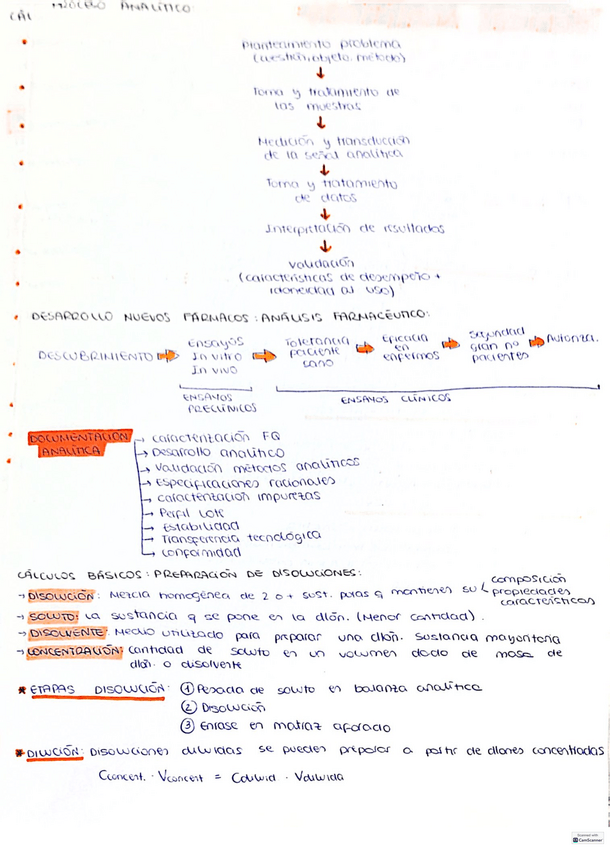 CAL
PROCESO ANALÍTICO
Planteamiento problema
(cuestión, objeto, método)
Toma y tratamiento de
las muestras
Medición y transducción
de la señal analítica
Toma y tratamiento
de datos
Interpretación de resultados
Validación
(características de desempeño +
idoneidad al uso)
DESARROLLO NUEVOS FÁRMACOS: ANÁLISIS FARMACÉUTICO:
DESCUBRIMIENTO Ensayos In vitro In vivo Tolerancia paciente sano Eficacia en enfermos Seguridad gran nº pacientes Autoriza.
ENSAYOS PRECLÍNICOS ENSAYOS CLÍNICOS
DOCUMENTACIÓN ANALÍTICA
→ Caracterización FQ
→ Desarrollo analítico
→ Validación métodos analíticos
→ Especificaciones racionales
→ Caracterización impurezas
→ Perfil Lote
→ Estabilidad
→ Transferencia tecnológica
→ Conformidad
CÁLCULOS BÁSICOS: PREPARACIÓN DE DISOLUCIONES:
→ DISOLUCIÓN: Mezcla homogénea de 2 o + sust. puras q mantienen su composición propiedades características
→ SOLUTO: La sustancia q se pone en la dlón. (Menor cantidad).
→ DISOLVENTE: Medio utilizado para preparar una dlón. Sustancia mayoritaria
→ CONCENTRACIÓN: Cantidad de soluto en un volumen dado de masa de
dlón. o disolvente
* ETAPAS DISOLUCIÓN: ① Pesada de soluto en balanza analítica
② Disolución
③ Enrase en matraz aforado
* DILUCIÓN: Disoluciones diluidas se pueden preparar a partir de dlones concentradas
Cconcent. · Vconcent = Cdiluid · Vdiluida
Scanned with
CamScanner